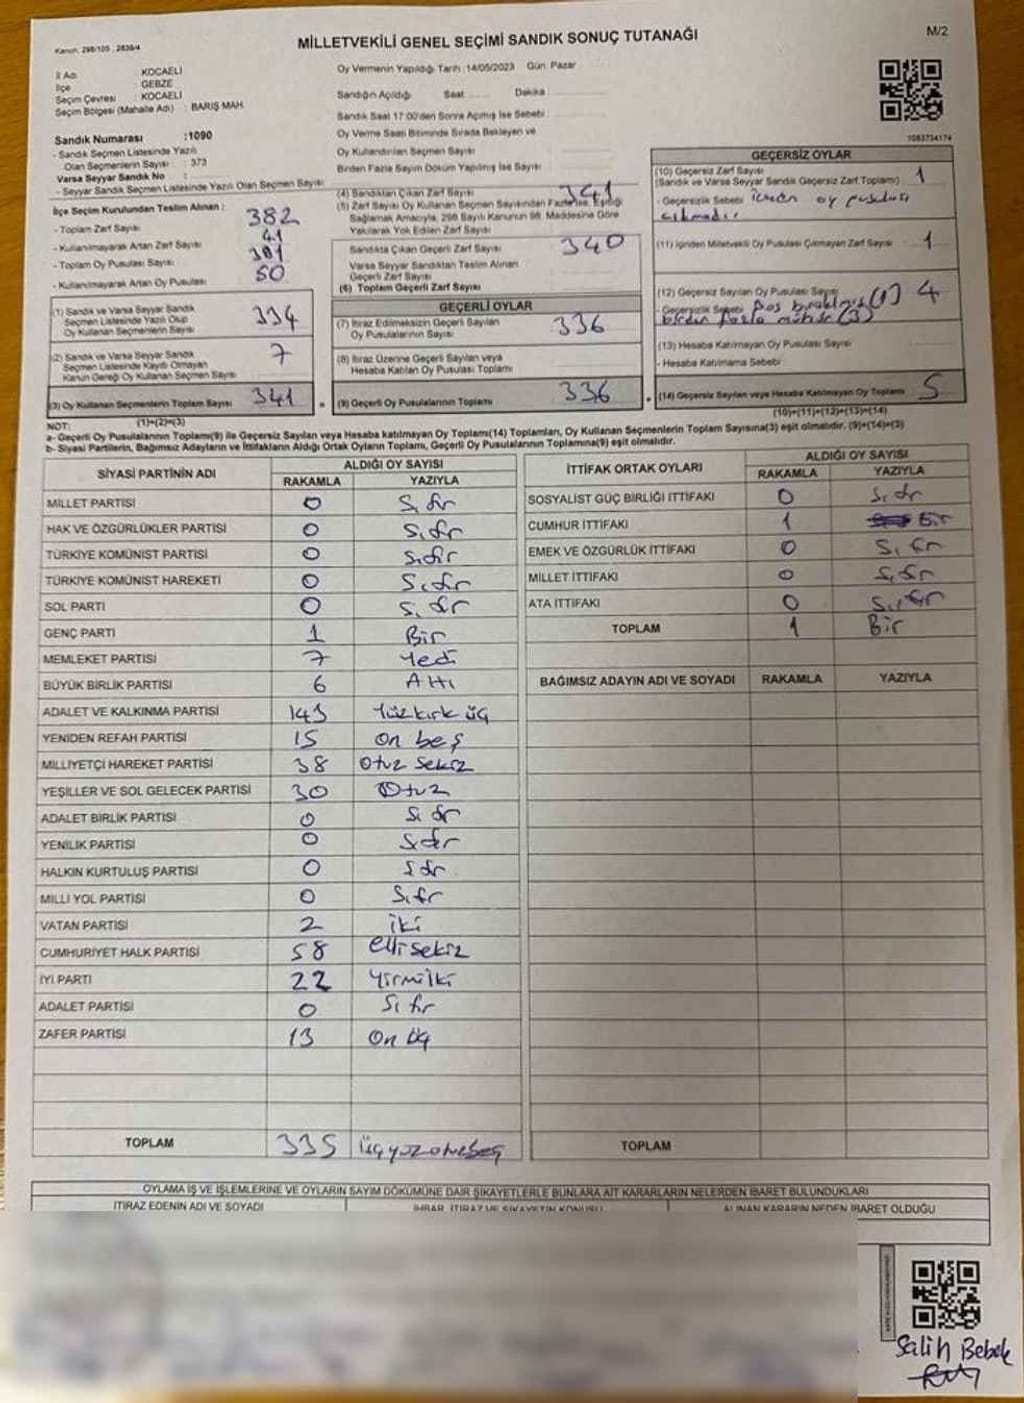 Kanun, 298/105 , 2839/4
MİLLETVEKİLİ GENEL SEÇİMİ SANDIK SONUÇ TUTANAĞI
M/2
İl Adı KOCAELİ
İlçe GEBZE
Seçim Çevresi KOCAELİ
Seçim Bölgesi (Mahalle Adı) : BARIŞ MAH.
Sandık Numarası :1090
- Sandık Seçmen Listesinde Yazılı
Olan Seçmenlerin Sayısı : 373
Varsa Seyyar Sandık No :
- Seyyar Sandık Seçmen Listesinde Yazılı Olan Seçmen Sayısı
Oy Vermenin Yapıldığı Tarih :14/05/2023 Gün: Pazar
Sandığın Açıldığı Saat Dakika
Sandık Saat 17:00'den Sonra Açılmış İse Sebebi :
Oy Verme Saati Bitiminde Sırada Bekleyen ve
Oy Kullandırılan Seçmen Sayısı
Birden Fazla Sayım Döküm Yapılmış İse Sayısı
1083734174
İlçe Seçim Kurulundan Teslim Alınan :
- Toplam Zarf Sayısı 382
- Kullanılmayarak Artan Zarf Sayısı 41
- Toplam Oy Pusulası Sayısı
- Kullanılmayarak Artan Oy Pusulası 50
(1) Sandık ve Varsa Seyyar Sandık
Seçmen Listesinde Yazılı Olup
Oy Kullanan Seçmenlerin Sayısı 334
(2) Sandık ve Varsa Seyyar Sandık
Seçmen Listesinde Kayıtlı Olmayan
Kanun Gereği Oy Kullanan Seçmen Sayısı 7
(3) Oy Kullanan Seçmenlerin Toplam Sayısı 341
(1)+(2)=(3)
(4) Sandıktan Çıkan Zarf Sayısı 341
(5) Zarf Sayısı Oy Kullanan Seçmen Sayısından Fazla İse, Eşitliği
Sağlamak Amacıyla, 298 Sayılı Kanunun 98. Maddesine Göre
Yakılarak Yok Edilen Zarf Sayısı
Sandıkta Çıkan Geçerli Zarf Sayısı 340
Varsa Seyyar Sandıktan Teslim Alınan
Geçerli Zarf Sayısı
(6) Toplam Geçerli Zarf Sayısı
GEÇERLİ OYLAR
(7) İtiraz Edilmeksizin Geçerli Sayılan
Oy Pusulalarının Sayısı 336
(8) İtiraz Üzerine Geçerli Sayılan veya
Hesaba Katılan Oy Pusulası Toplamı
(9) Geçerli Oy Pusulalarının Toplamı 336
GEÇERSİZ OYLAR
(10) Geçersiz Zarf Sayısı 1
(Sandık ve Varsa Seyyar Sandık Geçersiz Zarf Toplamı)
- Geçersizlik Sebebi içinden oy pusulası
çıkmadı
(11) İçinden Milletvekili Oy Pusulası Çıkmayan Zarf Sayısı 1
(12) Geçersiz Sayılan Oy Pusulası Sayısı 4
- Geçersizlik Sebebi Boş bırakılmış (1)
birden fazla mühür (3)
(13) Hesaba Katılmayan Oy Pusulası Sayısı
- Hesaba Katılmama Sebebi
(14) Geçersiz Sayılan veya Hesaba Katılmayan Oy Toplamı 5
(10)+(11)+(12)+(13)=(14)
NOT:
a- Geçerli Oy Pusulalarının Toplamı(9) ile Geçersiz Sayılan veya Hesaba katılmayan Oy Toplamı(14) Toplamları, Oy Kullanan Seçmenlerin Toplam Sayısına(3) eşit olmalıdır. (9)+(14)=(3)
b- Siyasi Partilerin, Bağımsız Adayların ve İttifakların Aldığı Ortak Oyların Toplamı, Geçerli Oy Pusulalarının Toplamına(9) eşit olmalıdır.
SİYASİ PARTİNİN ADI ALDIĞI OY SAYISI
RAKAMLA YAZIYLA
MİLLET PARTİSİ 0 Sıfır
HAK VE ÖZGÜRLÜKLER PARTİSİ 0 Sıfır
TÜRKİYE KOMÜNİST PARTİSİ 0 Sıfır
TÜRKİYE KOMÜNİST HAREKETİ 0 Sıfır
SOL PARTİ 0 Sıfır
GENÇ PARTİ 1 Bir
MEMLEKET PARTİSİ 7 Yedi
BÜYÜK BİRLİK PARTİSİ 6 Altı
ADALET VE KALKINMA PARTİSİ 143 Yüzkırk üç
YENİDEN REFAH PARTİSİ 15 On beş
MİLLİYETÇİ HAREKET PARTİSİ 38 Otuz Sekiz
YEŞİLLER VE SOL GELECEK PARTİSİ 30 Otuz
ADALET BİRLİK PARTİSİ 0 Sıfır
YENİLİK PARTİSİ 0 Sıfır
HALKIN KURTULUŞ PARTİSİ 0 Sıfır
MİLLİ YOL PARTİSİ 0 Sıfır
VATAN PARTİSİ 2 iki
CUMHURİYET HALK PARTİSİ 58 elli sekiz
İYİ PARTİ 22 Yirmi iki
ADALET PARTİSİ 0 Sıfır
ZAFER PARTİSİ 13 On üç
TOPLAM 335 Üçyüzotuzbeş
İTTİFAK ORTAK OYLARI ALDIĞI OY SAYISI
RAKAMLA YAZIYLA
SOSYALİST GÜÇ BİRLİĞİ İTTİFAKI 0 Sıfır
CUMHUR İTTİFAKI 1 Bir
EMEK VE ÖZGÜRLÜK İTTİFAKI 0 Sıfır
MİLLET İTTİFAKI 0 Sıfır
ATA İTTİFAKI 0 Sıfır
TOPLAM 1 Bir
BAĞIMSIZ ADAYIN ADI VE SOYADI RAKAMLA YAZIYLA
TOPLAM
OYLAMA İŞ VE İŞLEMLERİNE VE OYLARIN SAYIM DÖKÜMÜNE DAİR ŞİKAYETLERLE BUNLARA AİT KARARLARIN NELERDEN İBARET BULUNDUKLARI
İTİRAZ EDENİN ADI VE SOYADI İHBAR, İTİRAZ VE ŞİKAYETİN KONUSU ALINAN KARARIN NEDEN İBARET OLDUĞU
Salih Bebek